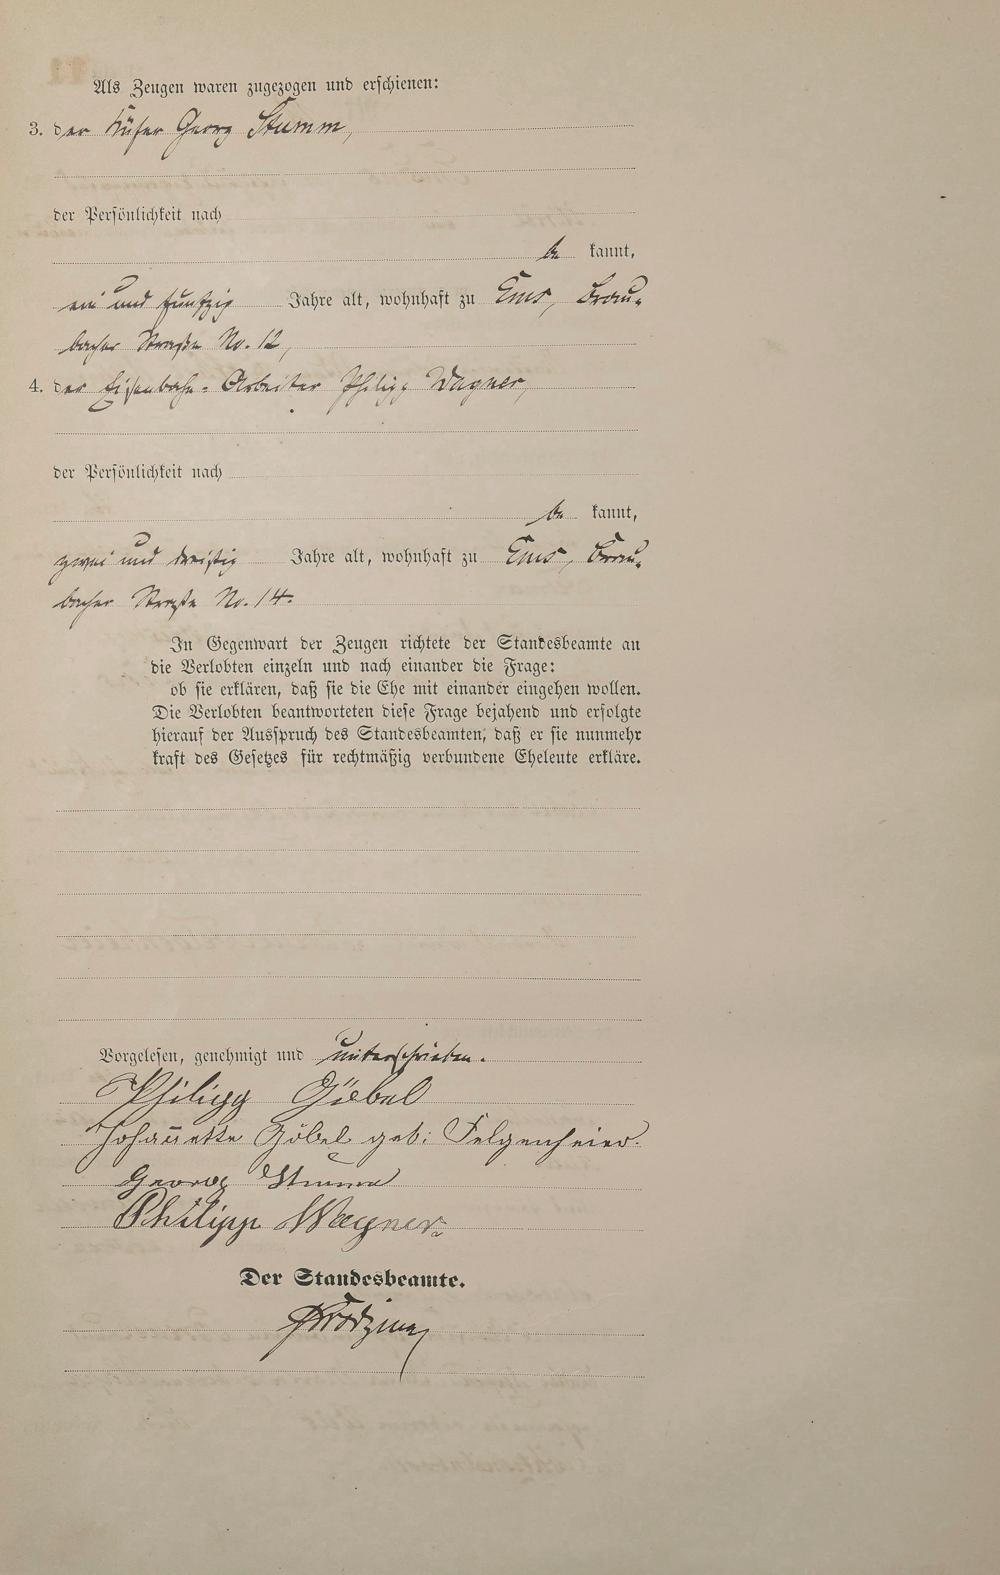 Als Zeugen waren zugezogen und erschienen:
3. der Küfer Georg Stumm,
der Persönlichkeit nach
be kannt,
ein und fünfzig Jahre alt, wohnhaft zu Ems, Brau-
bacher Straße No. 12,
4. der Eisenbahn-Arbeiter Philipp Wagner,
der Persönlichkeit nach
be kannt,
zwei und dreißig Jahre alt, wohnhaft zu Ems, Brau-
bacher Straße No. 14.
In Gegenwart der Zeugen richtete der Standesbeamte an
die Verlobten einzeln und nach einander die Frage:
ob sie erklären, daß sie die Ehe mit einander eingehen wollen.
Die Verlobten beantworteten diese Frage bejahend und erfolgte
hierauf der Ausspruch des Standesbeamten, daß er sie nunmehr
kraft des Gesetzes für rechtmäßig verbundene Eheleute erkläre.
Vorgelesen, genehmigt und unterschrieben.
Philipp Göbel
Johannette Göbel geb: Felgenheier.
Georg Stumm
Philipp Wagner.
Der Standesbeamte.